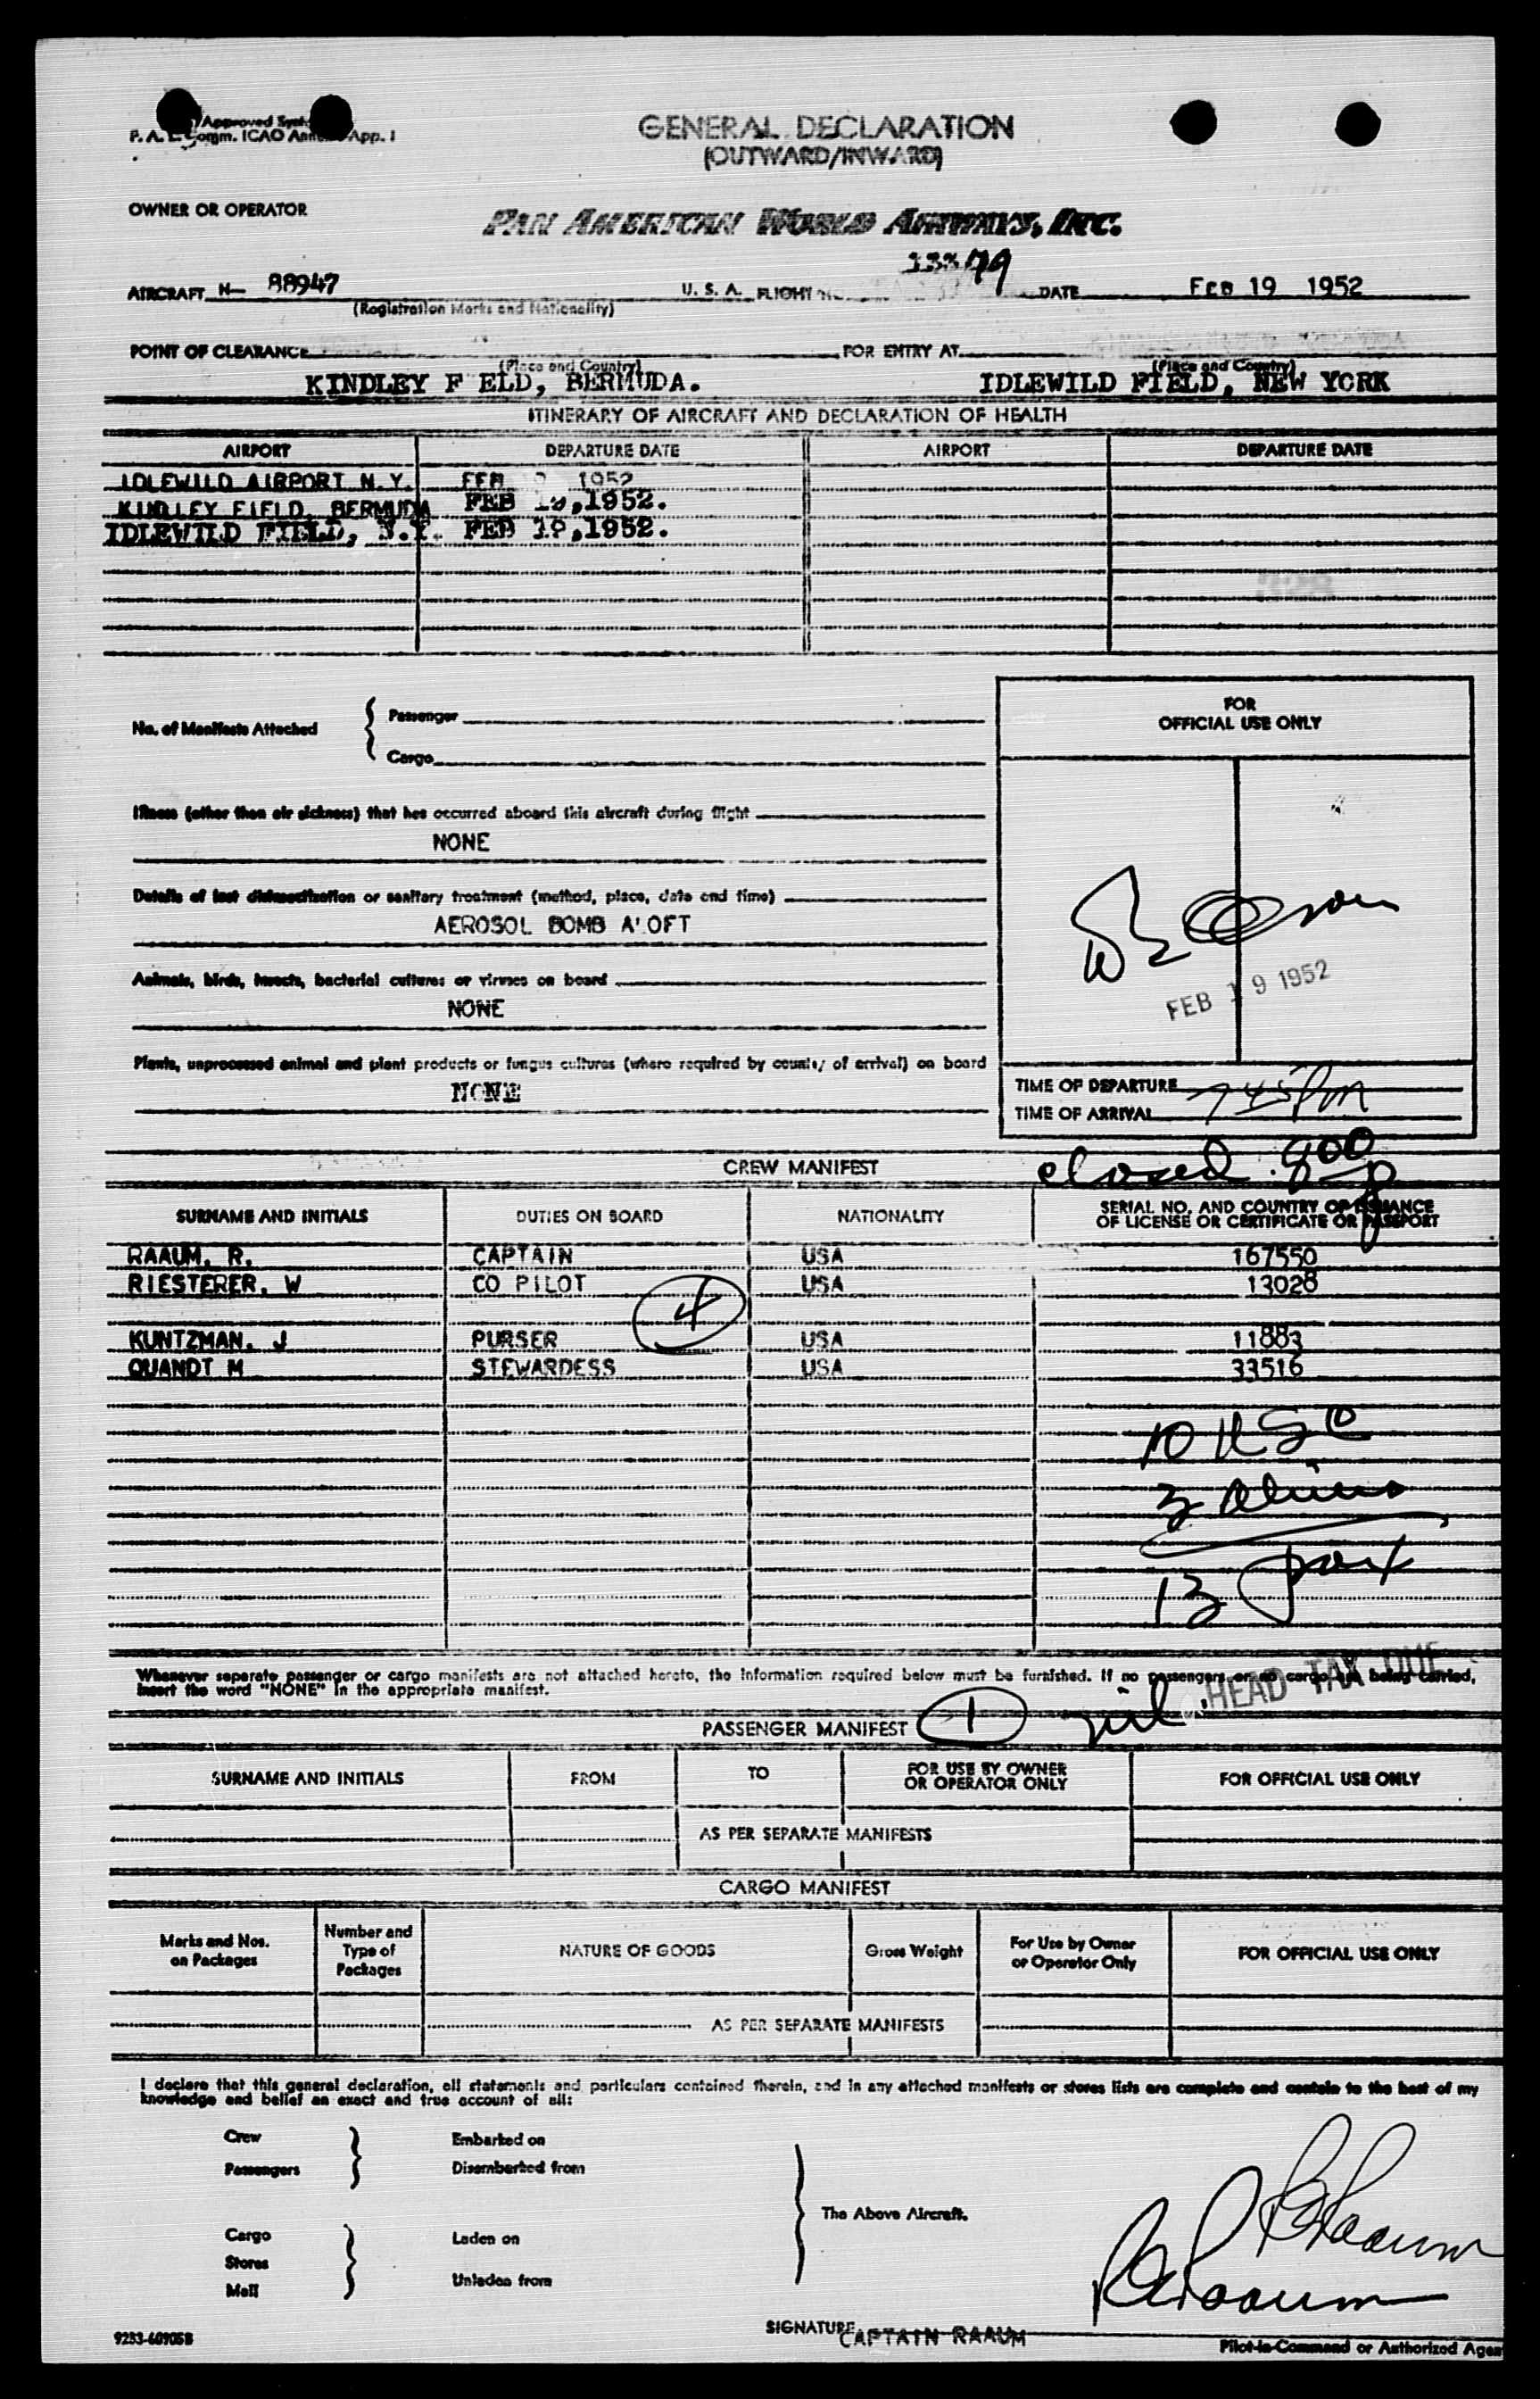 Approved
P. A. Comm. ICAO App. 1
GENERAL DECLARATION
(OUTWARD/INWARD)
OWNER OR OPERATOR
PAN AMERICAN WORLD AIRWAYS, INC.
79
AIRCRAFT N— 88947 U. S. A. FLIGHT DATE FEB 19 1952
(Registration Marks and Nationality)
POINT OF CLEARANCE FOR ENTRY AT
(Place and Country) (Place and Country)
KINDLEY F ELD, BERMUDA. IDLEWILD FIELD, NEW YORK
ITINERARY OF AIRCRAFT AND DECLARATION OF HEALTH
AIRPORT DEPARTURE DATE AIRPORT DEPARTURE DATE
IDLEWILD AIRPORT N.Y. FEB 1952
KINDLEY FIELD, BERMUDA FEB ,1952.
IDLEWILD FIELD, N.Y. FEB ,1952.
328
No. of Manifests Attached { Passenger
Cargo
Illness (other than air sickness) that has occurred aboard this aircraft during flight
NONE
Details of last disinsectization or sanitary treatment (method, place, date and time)
AEROSOL BOMB A' OFT
Animals, birds, insects, bacterial cultures or viruses on board
NONE
Plants, unprocessed animal and plant products or fungus cultures (where required by country of arrival) on board
NONE
FOR
OFFICIAL USE ONLY
FEB 19 1952
TIME OF DEPARTURE 745 PM
TIME OF ARRIVAL
closed 800 p
CREW MANIFEST
SURNAME AND INITIALS DUTIES ON BOARD NATIONALITY SERIAL NO. AND COUNTRY OF ISSUANCE
OF LICENSE OR CERTIFICATE OR PASSPORT
RAAUM, R. CAPTAIN USA 167550
RIESTERER, W CO PILOT USA 13028
4
KUNTZMAN, J PURSER USA 11883
QUANDT M STEWARDESS USA 33516
10 USC
3 Aliens
13
Whenever separate passenger or cargo manifests are not attached hereto, the information required below must be furnished. If no passengers or no cargo are being carried,
insert the word "NONE" in the appropriate manifest.
nil HEAD TAX DUE
PASSENGER MANIFEST 1
SURNAME AND INITIALS FROM TO FOR USE BY OWNER
OR OPERATOR ONLY FOR OFFICIAL USE ONLY
AS PER SEPARATE MANIFESTS
CARGO MANIFEST
Marks and Nos.
on Packages Number and
Type of
Packages NATURE OF GOODS Gross Weight For Use by Owner
or Operator Only FOR OFFICIAL USE ONLY
AS PER SEPARATE MANIFESTS
I declare that this general declaration, all statements and particulars contained therein, and in any attached manifests or stores lists are complete and contain to the best of my
knowledge and belief an exact and true account of all:
Crew } Embarked on
Passengers Disembarked from
} The Above Aircraft.
Cargo Laden on
Stores }
Mail Unladen from
R Raaum
R Raaum
SIGNATURE CAPTAIN RAAUM
Pilot-in-Command or Authorized Agen
9253-60905B